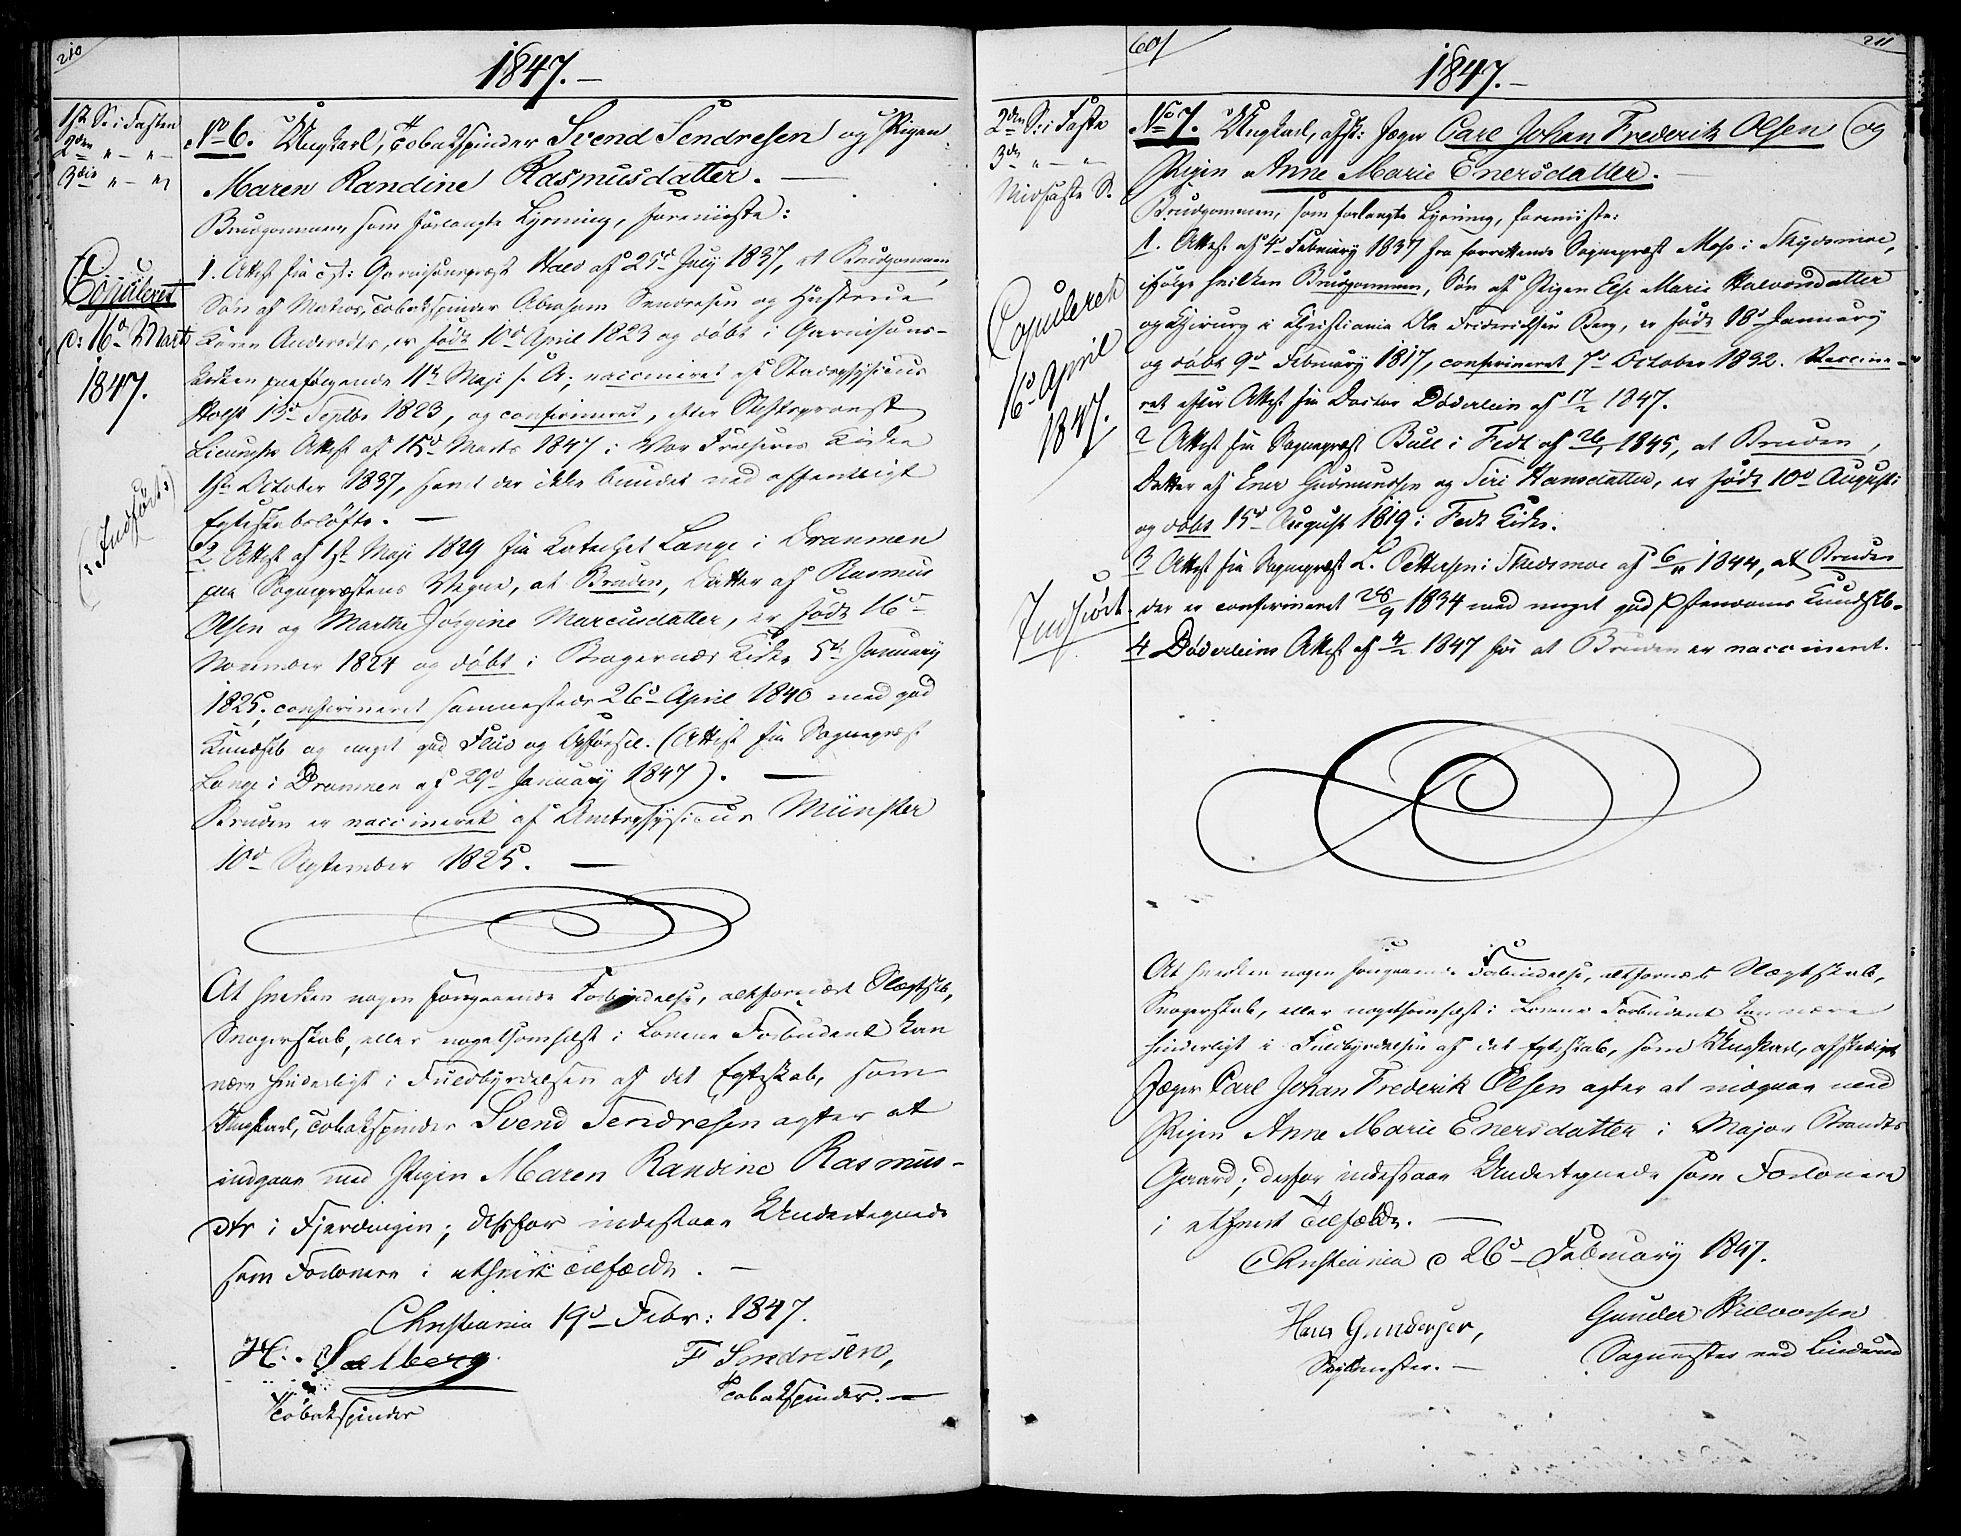 210
1847.
1ste S. i Fasten
2den " — " —
3die " — "
Copuleret
d: 16d Marts
1847.
(: Indført :)
No 6. Ungkarl, Tobakspinder Svend Sendresen og Pigen
Maren Randine Rasmusdatter.
Brudgommen, som forlangte Lysning, foreviiste:
1. Attest fra cst: Garnisonspræst Hald af 25d July 1837, at Brudgommen,
Søn af Matros, Tobakspinder Abraham Sendresen og Hustrue
Karen Andersdtr, er født 10d April 1823 og døbt i Garnisons-
kirken paafølgende 11te Maji s. A; vaccineret af Stadsphysicus
Holst 13d Septbr 1823, og confirmeret, efter Stiftsprovst
Attest af 15d Marts 1847 i Vor Frelsers Kirke
1ste October 1837, samt der ikke bundet ved offentligt
Egteskabsløfte.
2 Attest af 1ste Maji 1829 fra Catechet Lange i Drammen
paa Sognepræstens Vegne, at Bruden, Datter af Rasmus
Olsen og Marthe Jørgine Marcusdatter, er født 16d
November 1824 og døbt i Bragernæs Kirke 5te January
1825; confirmeret sammesteds 26d April 1840 med god
Kundskb og meget god Fliid og Opførsel. (Attest fra Sognepræst
Lange i Drammen af 29d January 1847).
Bruden er vaccineret af Amtsphysicus Münster
10d September 1825.
At hverken nogen foregaaende Forbindelse, altfornært Slægtskb,
Svogerskab, eller nogetsomhelst i Lovene Forbudent kan
være hinderligt i Fuldbyrdelsen af det Egteskab, som
Ungkarl, Tobakspinder Svend Sendresen agter at
indgaae med Pigen Maren Randine Rasmus-
dtr i Fjerdingen; derfor indestaae Undertegnede
som Forlovere i ethvert Tilfælde.
Christiania 19d Febr: 1847.
H. Sælberg
Tobakspinder
F Sendresen,
Tobakspinder.
601
211
1847.
2den S: i Faste
3die " — "
Midfaste S.
Copuleret
16d April
1847.
Indført
No 7. Ungkarl, afsk: Jæger Carl Johan Frederik Olsen og
Pigen Anne Marie Enersdatter.
Brudgommen, som forlangte Lysning, foreviiste:
1. Attest af 4d February 1837 fra forrettende Sognepræst Moss i Skydsmoe,
ifølge hvilken Brudgommen, Søn af Pigen Else Marie Halvorsdatter
og Chirurg i Christiania Ole Fridrichsen Berg, er født 18d January
og døbt 9d February 1817, confirmeret 7d October 1832. Vaccine-
ret efter Attest fra Doctor Døderlein af 17/2 1847.
2 Attest fra Sognepræst Bull i Fedt af 26/1 1845, at Bruden,
Datter af Ener Gudmundsen og Siri Hansdatter, er født 10d August
og døbt 15d August 1819 i Fedt Kirke.
3 Attest fra Sognepræst L. Pettersen i Skedsmoe af 6/11 1844, at Bruden
der er confirmeret 28/9 1834 med meget god Christendoms Kundskb.
4 Døderleins Attest af 4/2 1847 for at Bruden er vaccineret.
At hverken nogen foregaaende Forbindelse, altfornært Slægtskab,
Svogerskab, eller nogetsomhelst i Lovene Forbudent kan være
hinderligt i Fuldbyrdelsen af det Egteskab, som Ungkarl, afskediget
Jæger Carl Johan Frederik Olsen agter at indgaae med
Pigen Anne Marie Enersdatter i Major Brandts
Gaard; derfor indestaae Undertegnede som Forlovere
i ethvert Tilfælde.
Christiania d 26d February 1847.
Hans Gundersen,
Skydtmester.
Gunder Halvorsen
Sagmester ved Linderud